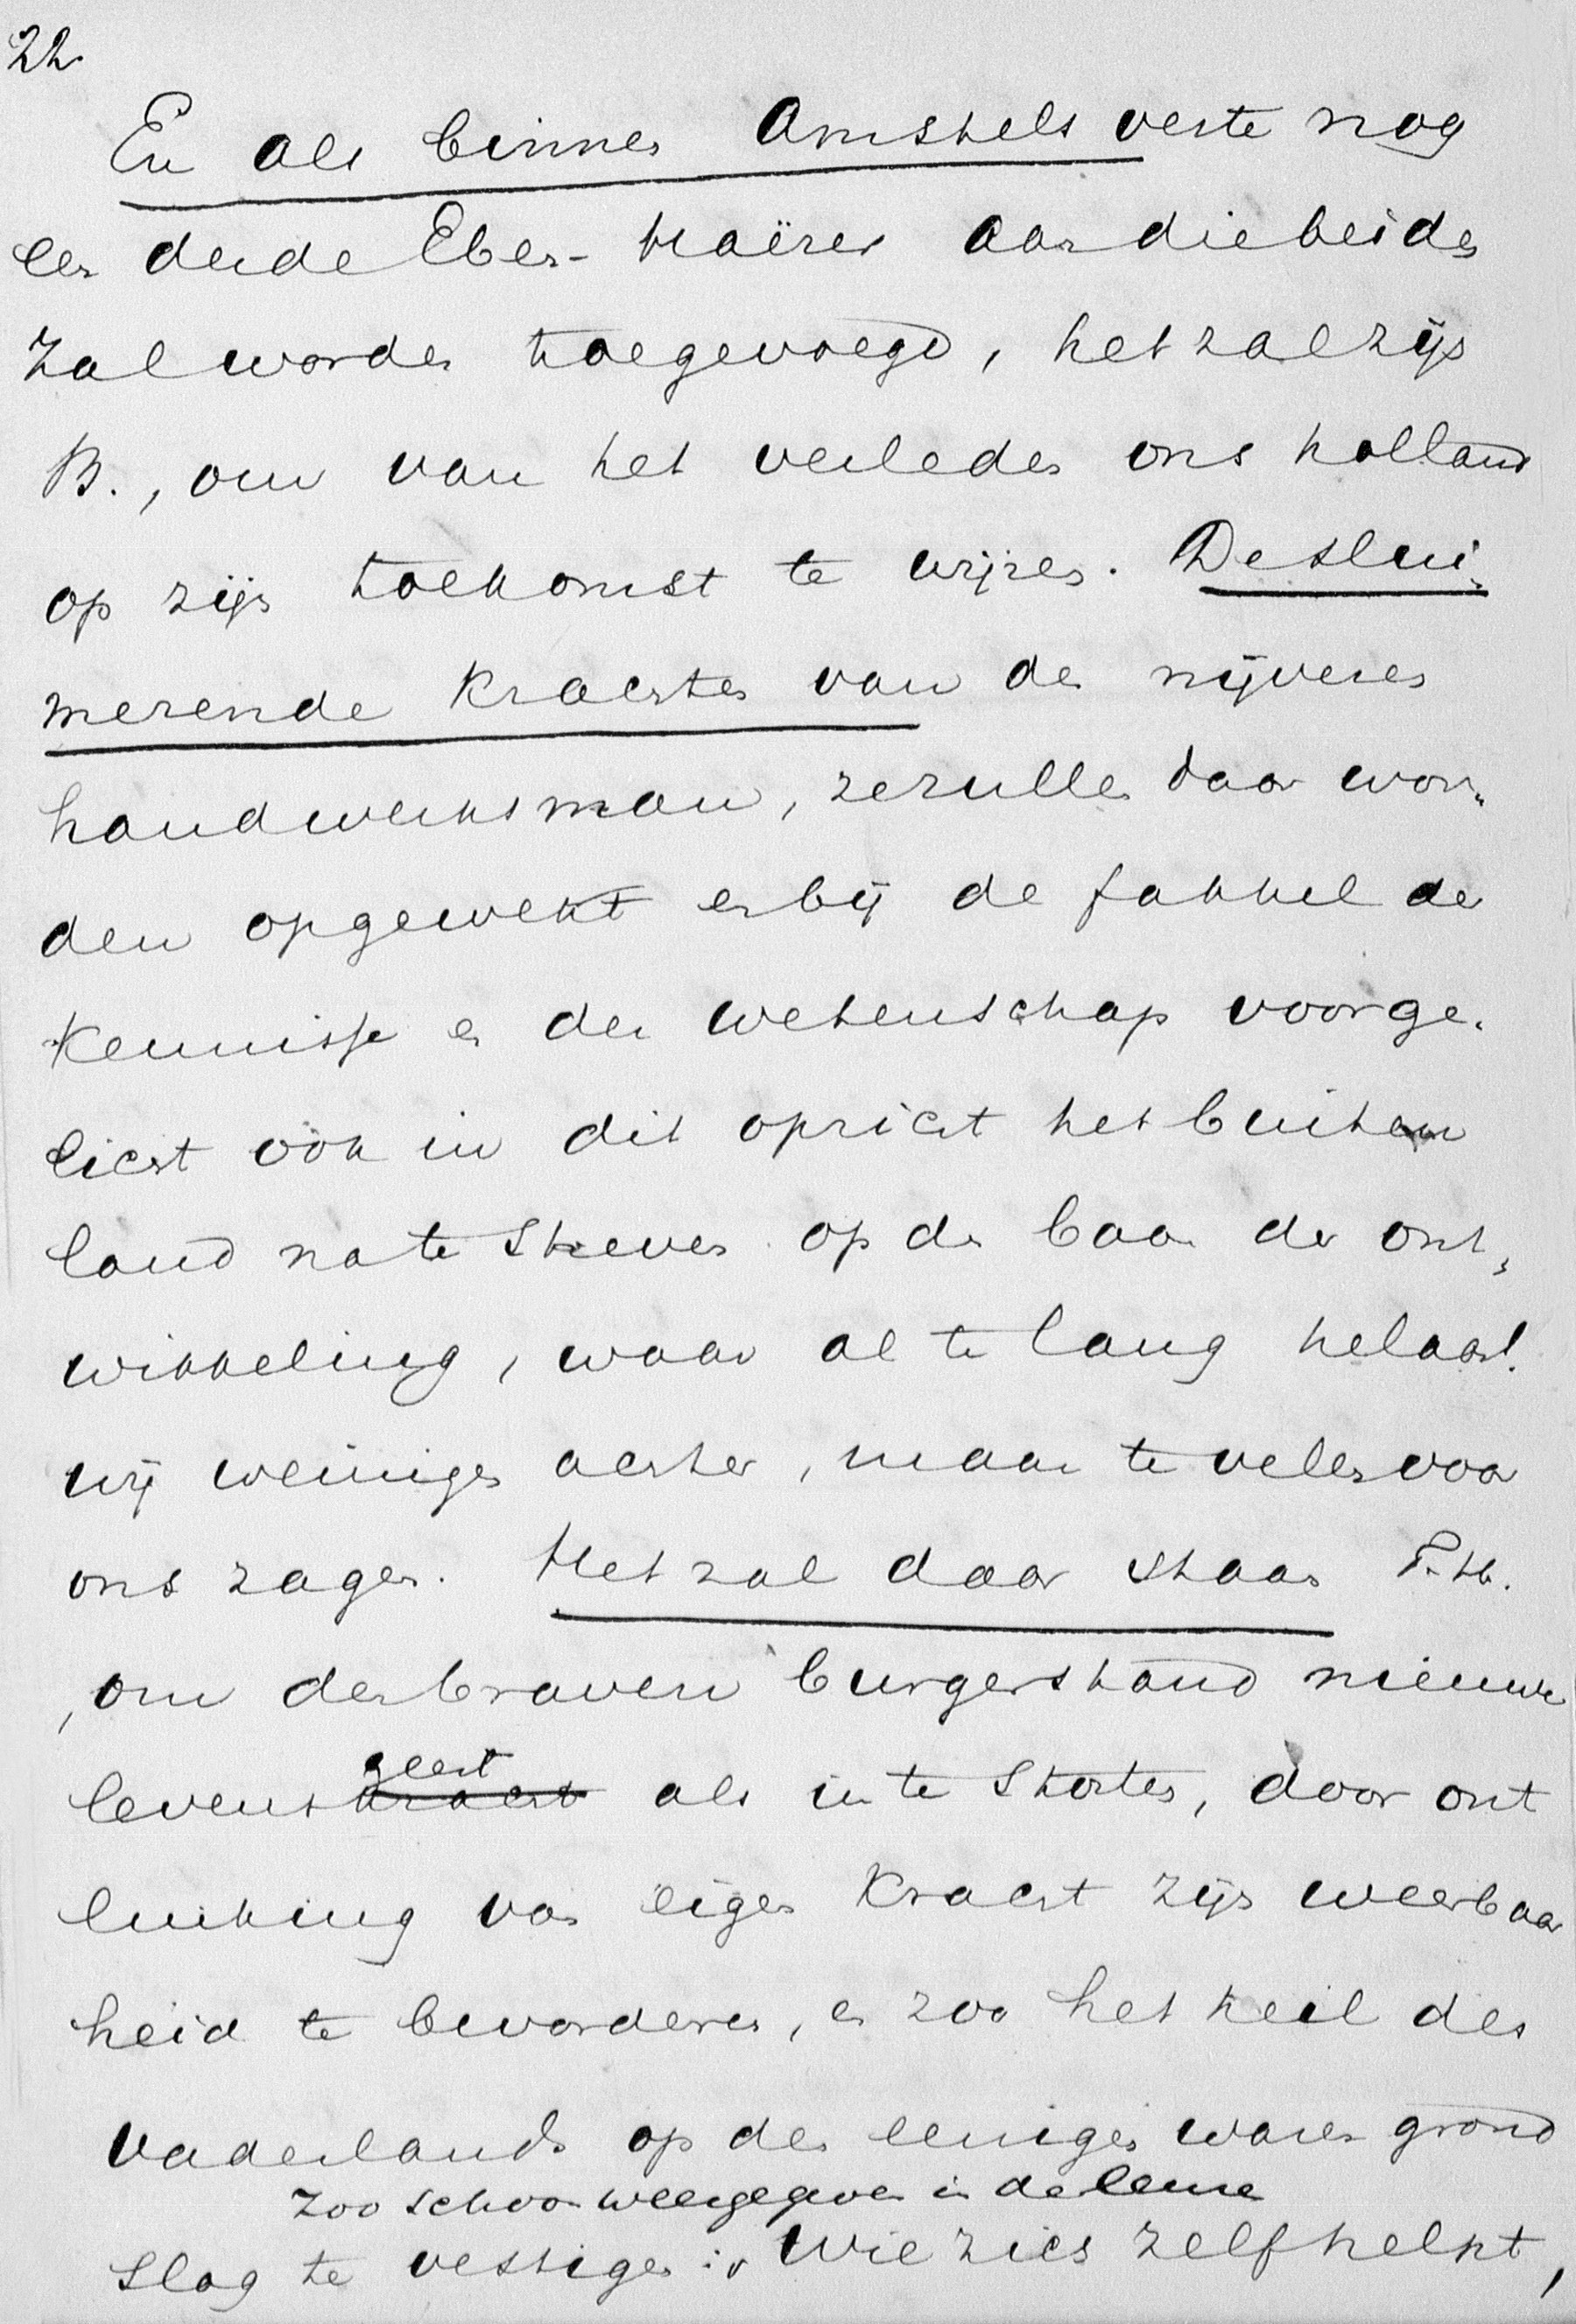 22.
En als binnen Amstels veste nog
een derde Eben-Haëzer aan die beiden
zal worden toegevoegd, het zal zijn
B., om van het verleden ons holland
op zijn toekomst te wijzen. De slui-
merende krachten van den nijveren
handwerksman, ze zullen daar wor-
den opgewekt en bij de fakkel der
kennisse en der wetenschap voorge-
licht ook in dit opzicht het buiten
land na te streven op de baan der ont-
wikkeling, waar al te lang helaas!
wij weinigen achter, maar te velen voor
ons zagen. Het zal daar staan T.H.
, om den braven burgerstand nieuwe
levenskracht geest als in te storten, door ont
luiking van eigen kracht zijn weerbaar
heid te bevorderen, en zoo het heil des
Vaderlands op den eenigen waren grond
zoo schoon weergegeven in de leuze
slag te vestigen: „Wie zich zelf helpt,